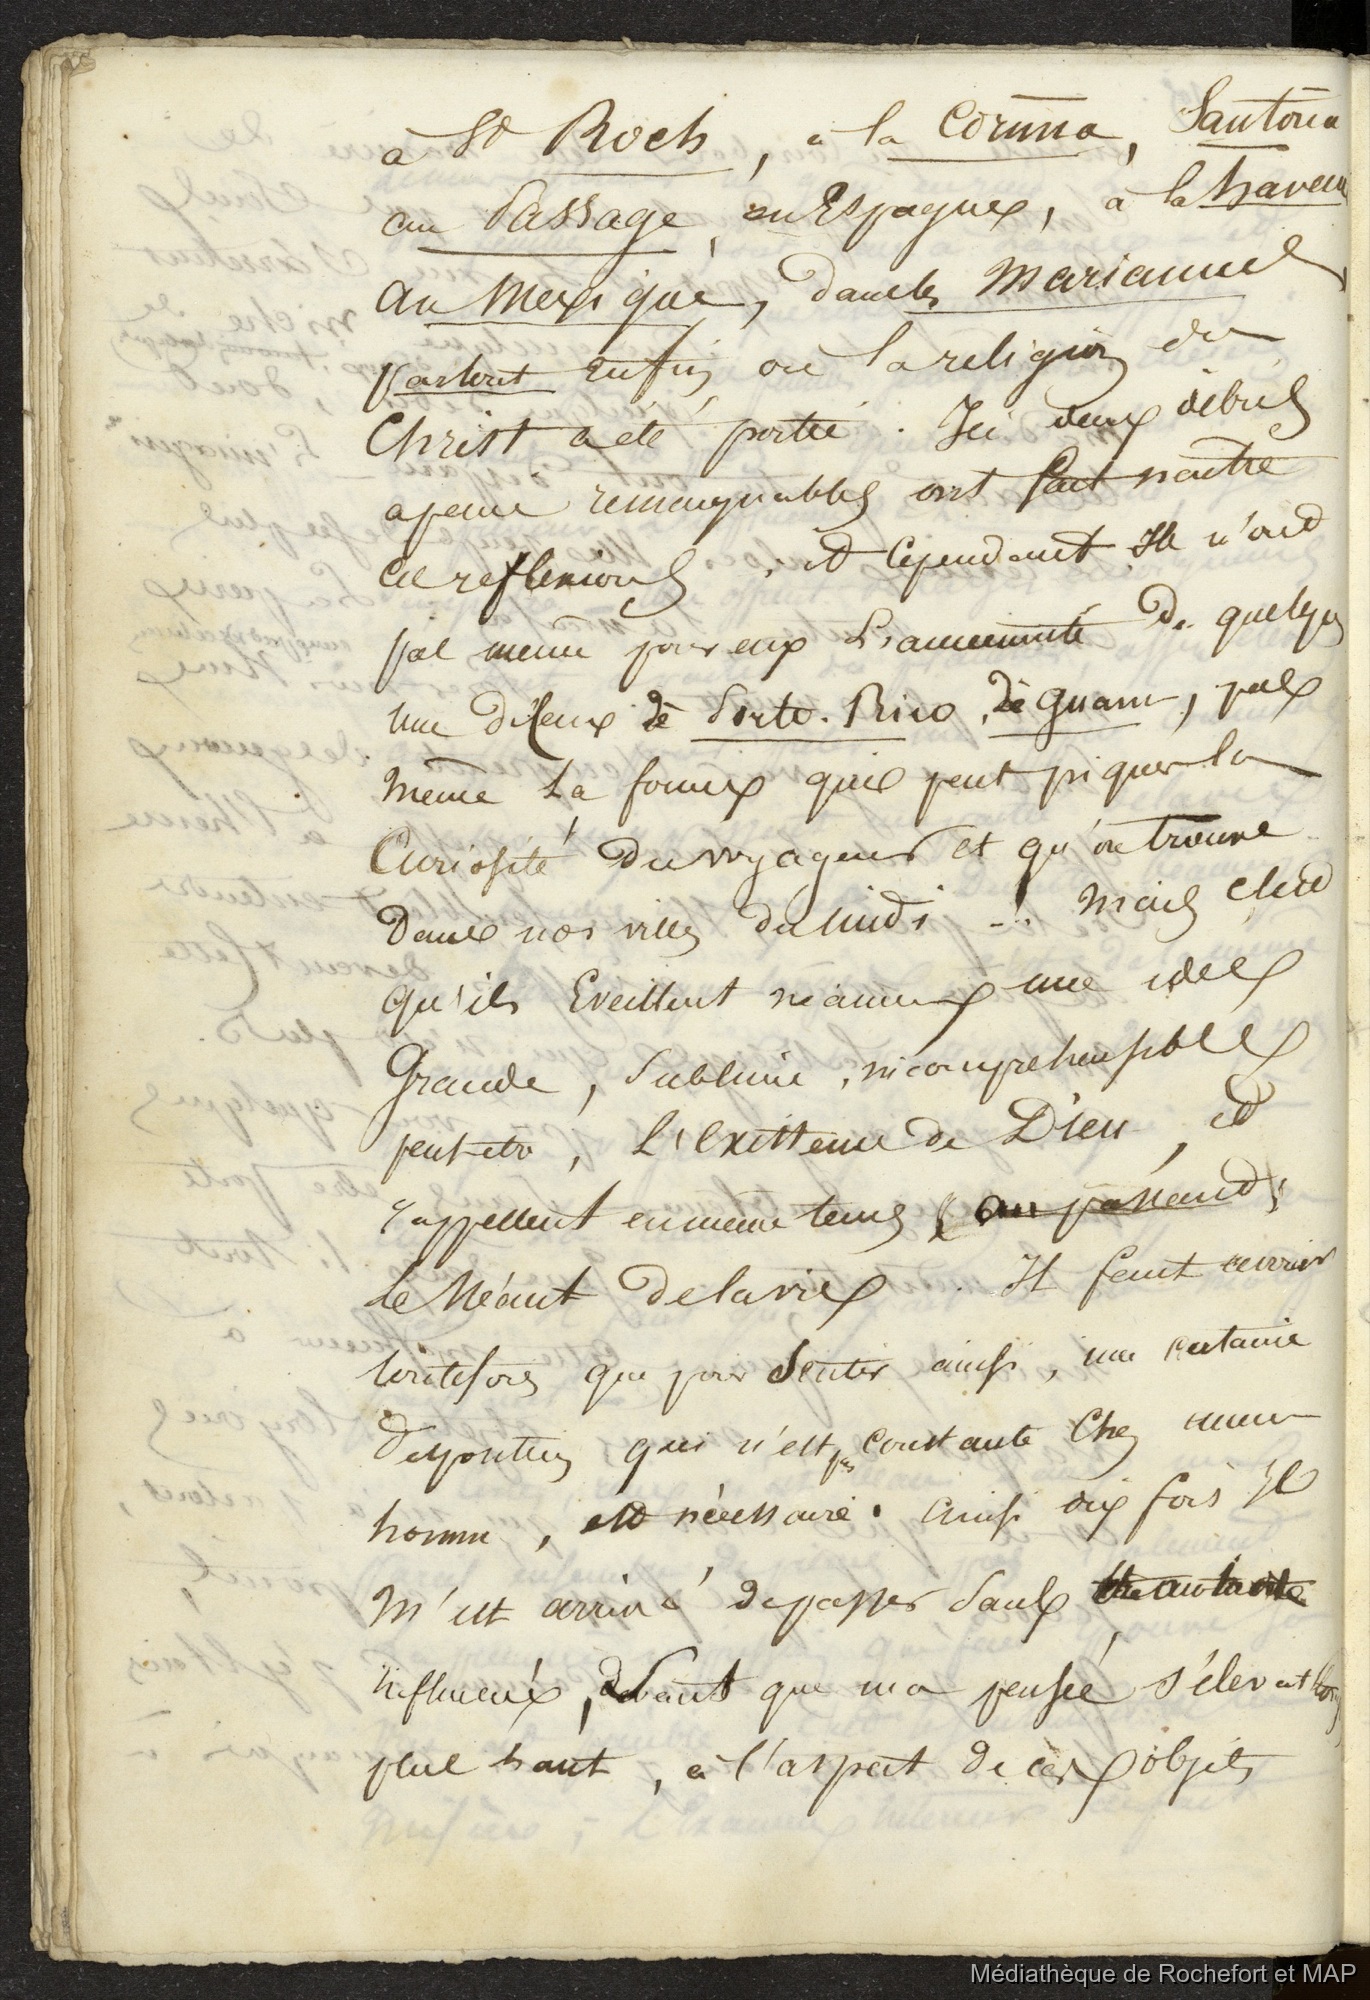 à St Roch, à la Coruna, Santona
au Passage, en Espagne, à la havan
au Mexique, dans les Mariannes,
partout enfin où la religion du
Christ a été portée. Ici deux débris
a peine remarquables ont fait naitre
ces reflexions, et cependant Ils n'ont
pas même pour eux L'ancienneté de quelques
uns de ceux de Porto.Rico, de Guam, pas
même La forme qui peut piquer la
Curiosité du voyageur et qu'on trouve
Dans nos villes du midi ... Mais c'est
qu'ils Eveillent une idée
Grande, Sublime, incompréhensible
peut-etre, L'existence de Dieu, et
rappellent en même tems au passant,
Le Néant de la vie. Il faut avouer
toutefois que pour Sentir ainsi, une certaine
disposition qui n'est pas constante chez
homme, est nécessaire. Ainsi dix fois Il
M'est arrivé de passer Sans
influence, devant que ma pensée s'élevat
plus haut, à l'aspect de ces objets
Médiathèque de Rochefort et MAP